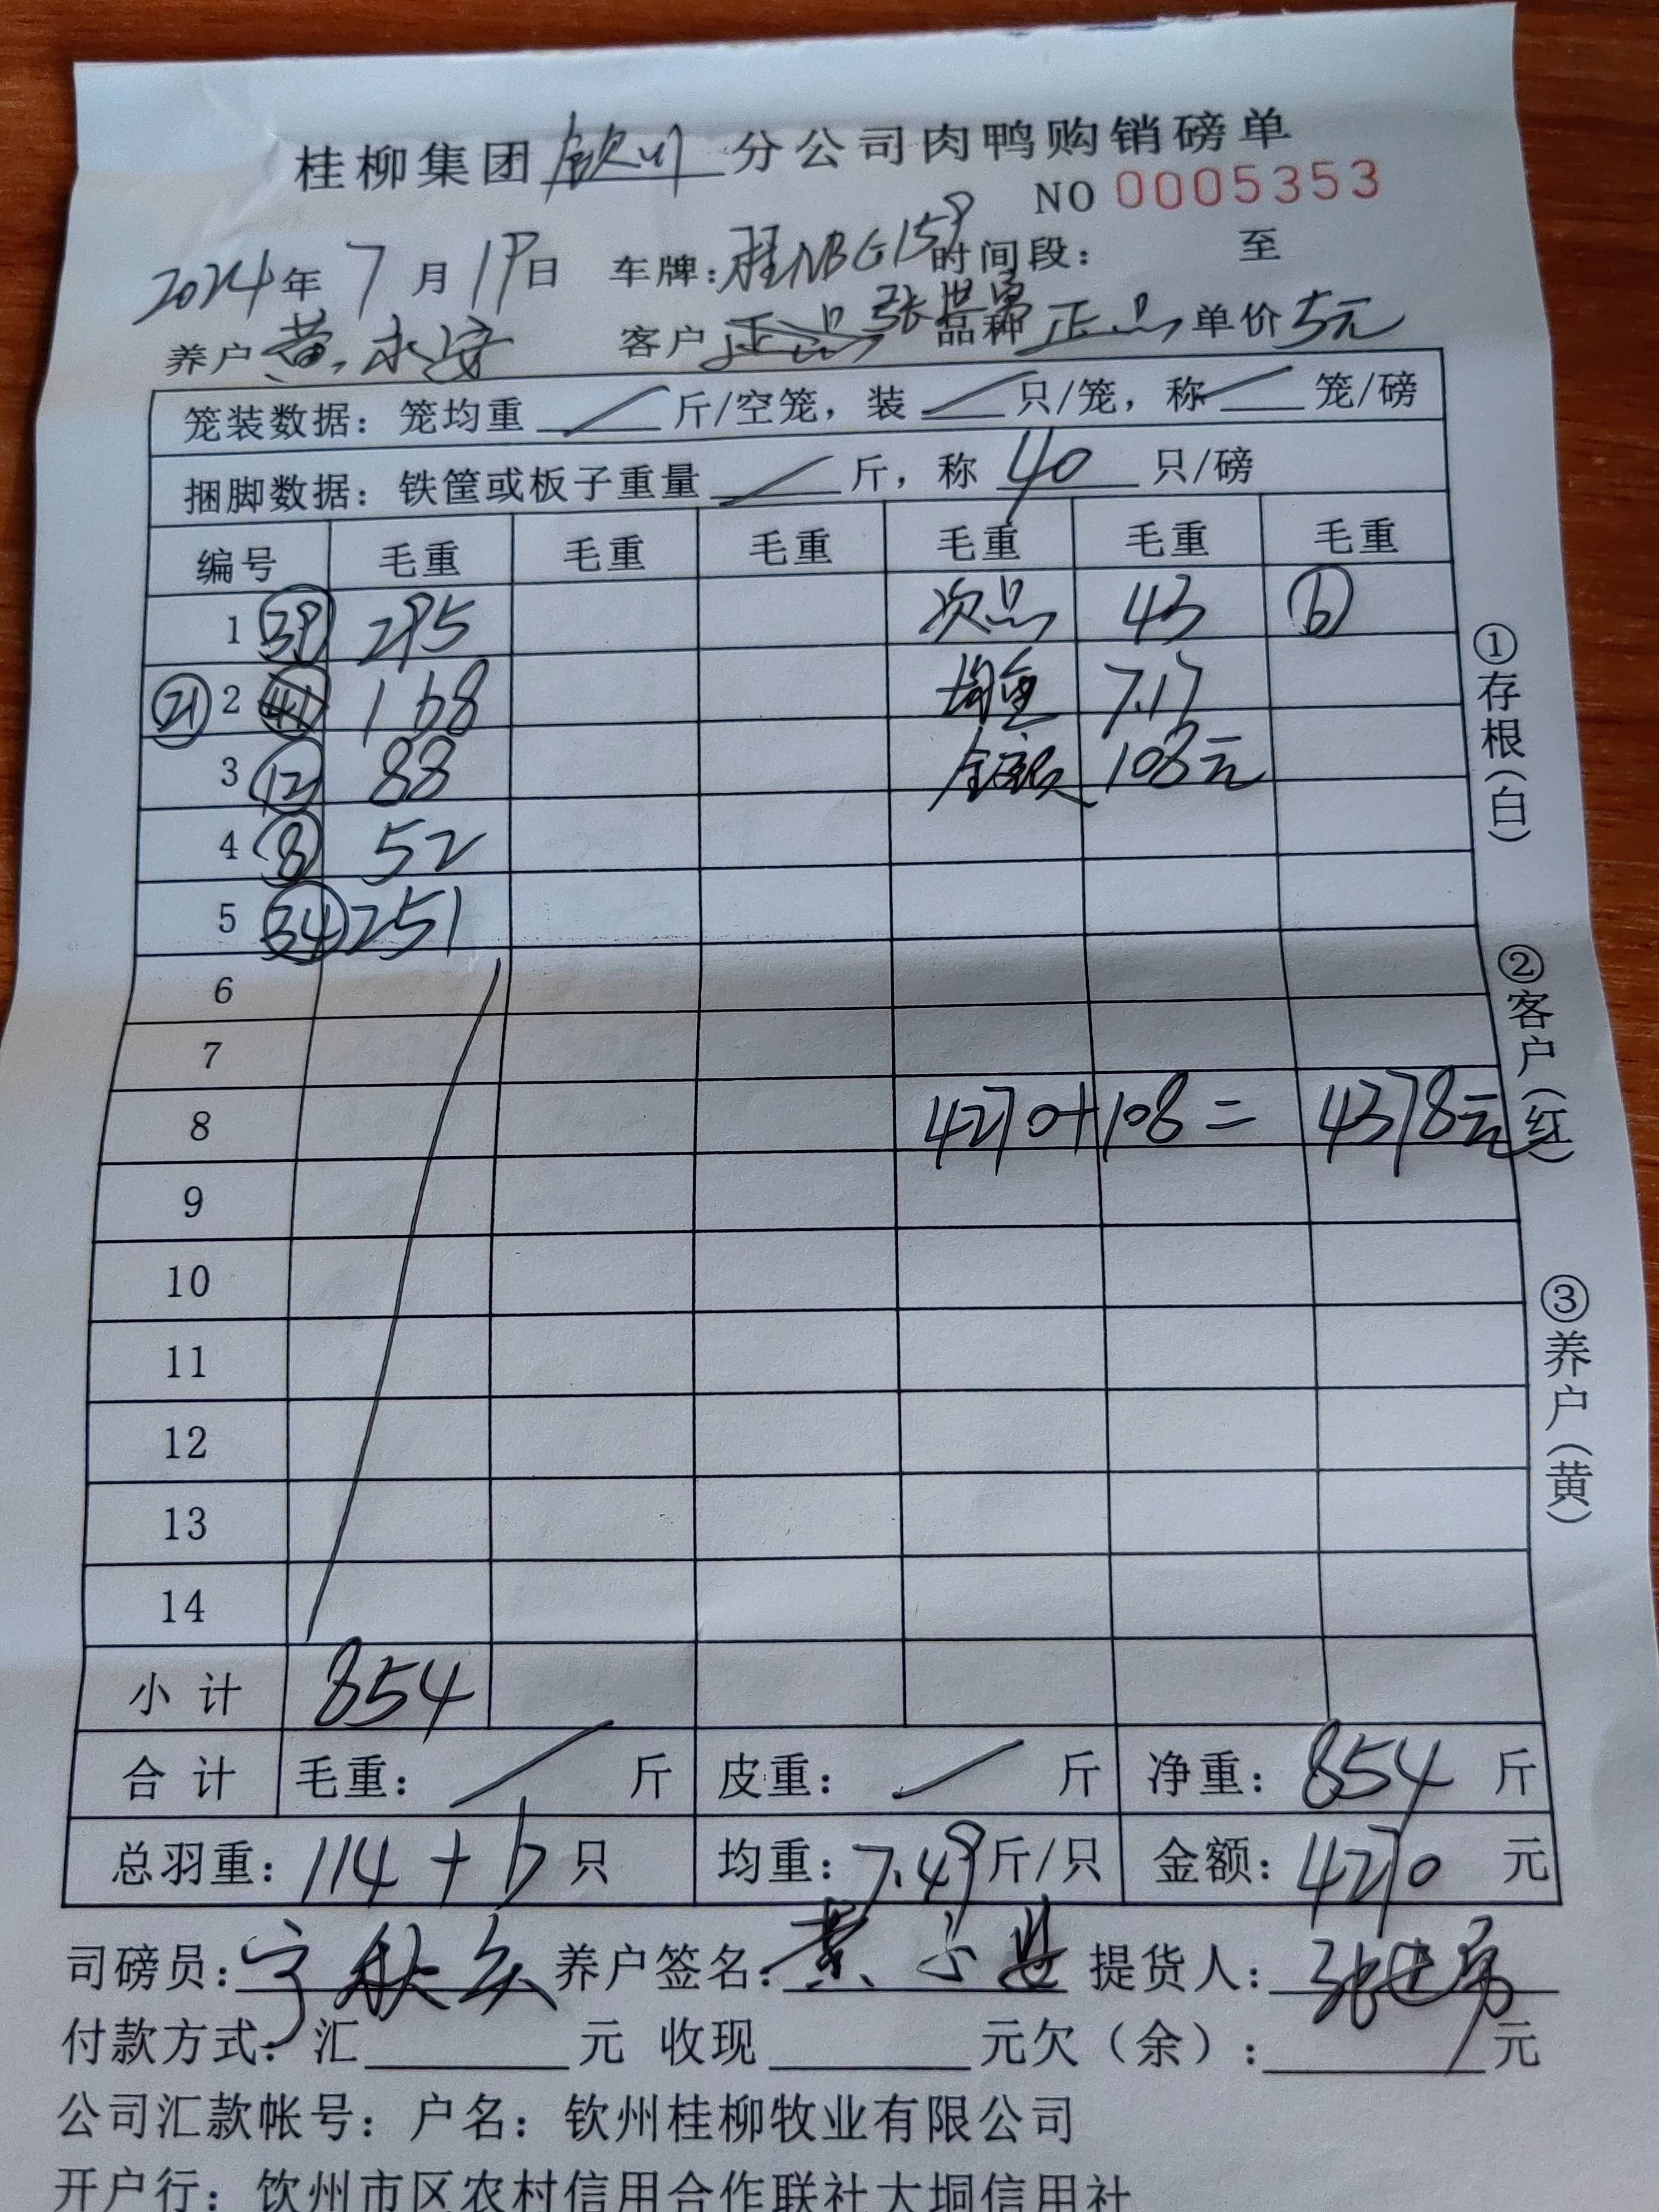 桂柳集团钦州分公司肉鸭购销磅单
NO 0005353
2024年7月19日 车牌:桂NBG159时间段: 至
养户黄永安 客户 张世勇 品种正品单价5元
笼装数据：笼均重 斤/空笼，装 只/笼，称 笼/磅
捆脚数据：铁筐或板子重量 斤，称 40 只/磅
编号 毛重 毛重 毛重 毛重 毛重 毛重
1 39 295 次品 43 6
21 2 168 均重 7.17
3 12 88 金额 108元
4 8 52
5 34 251
6
7
8 4270+108= 4378元
9
10
11
12
13
14
小计 854
合计 毛重： 斤 皮重： 斤 净重：854 斤
总羽重：114+6只 均重：7.49斤/只 金额：4270 元
司磅员：宁秋 养户签名：黄永安 提货人：张世勇
付款方式：汇 元 收现 元欠（余）： 元
公司汇款帐号：户名：钦州桂柳牧业有限公司
开户行：钦州市区农村信用合作联社大垌信用社
①存根（白）
②客户（红）
③养户（黄）